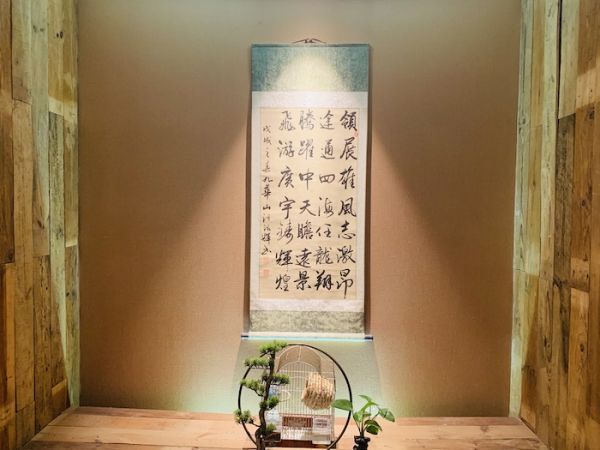 領展雄風志激昂
途通四海任龍翔
騰躍中天瞻遠景
飛游廣宇鑄輝煌
戊戌之春九華山